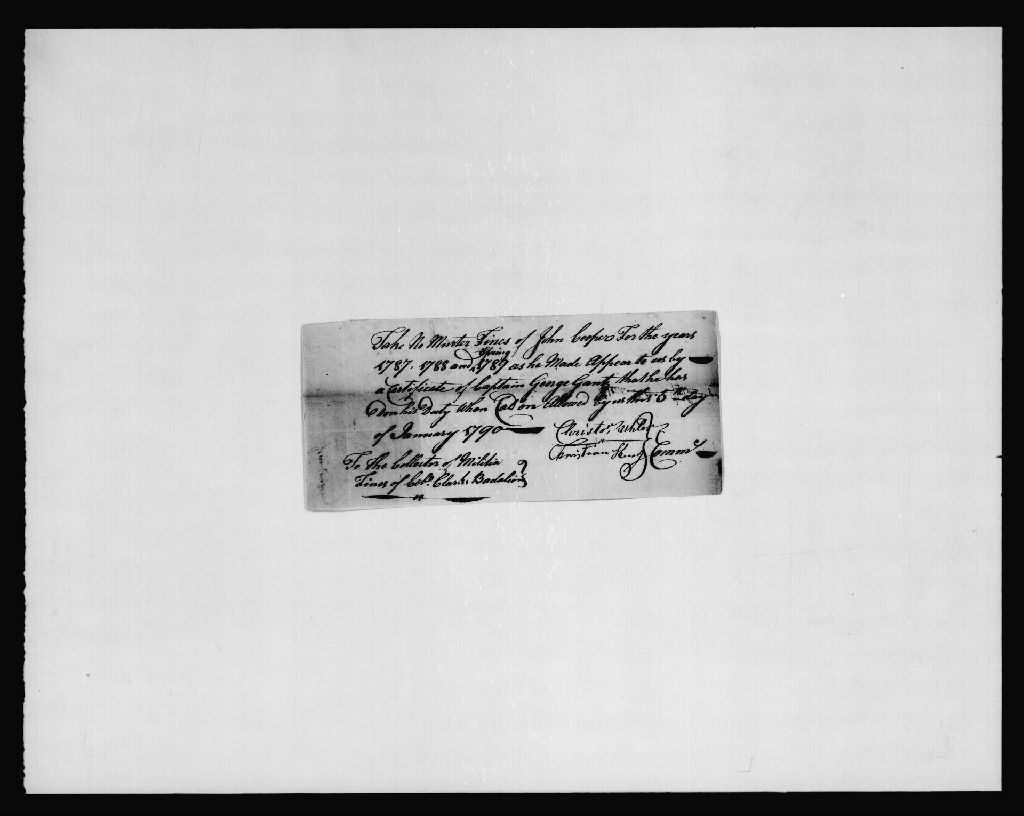 Take No Muster Fines of John Cooper For the years
1787. 1788 and Spring 1789 as he Made Appear to us by
a Certificate of Captain George Gantz that he has
Don his Duty when Cald on Allowed by us this 5th Day
of January 1790
Christr Uhler
Christian Commrs
To the Collector of Militia
Fines of Colo. Clarks Badalion